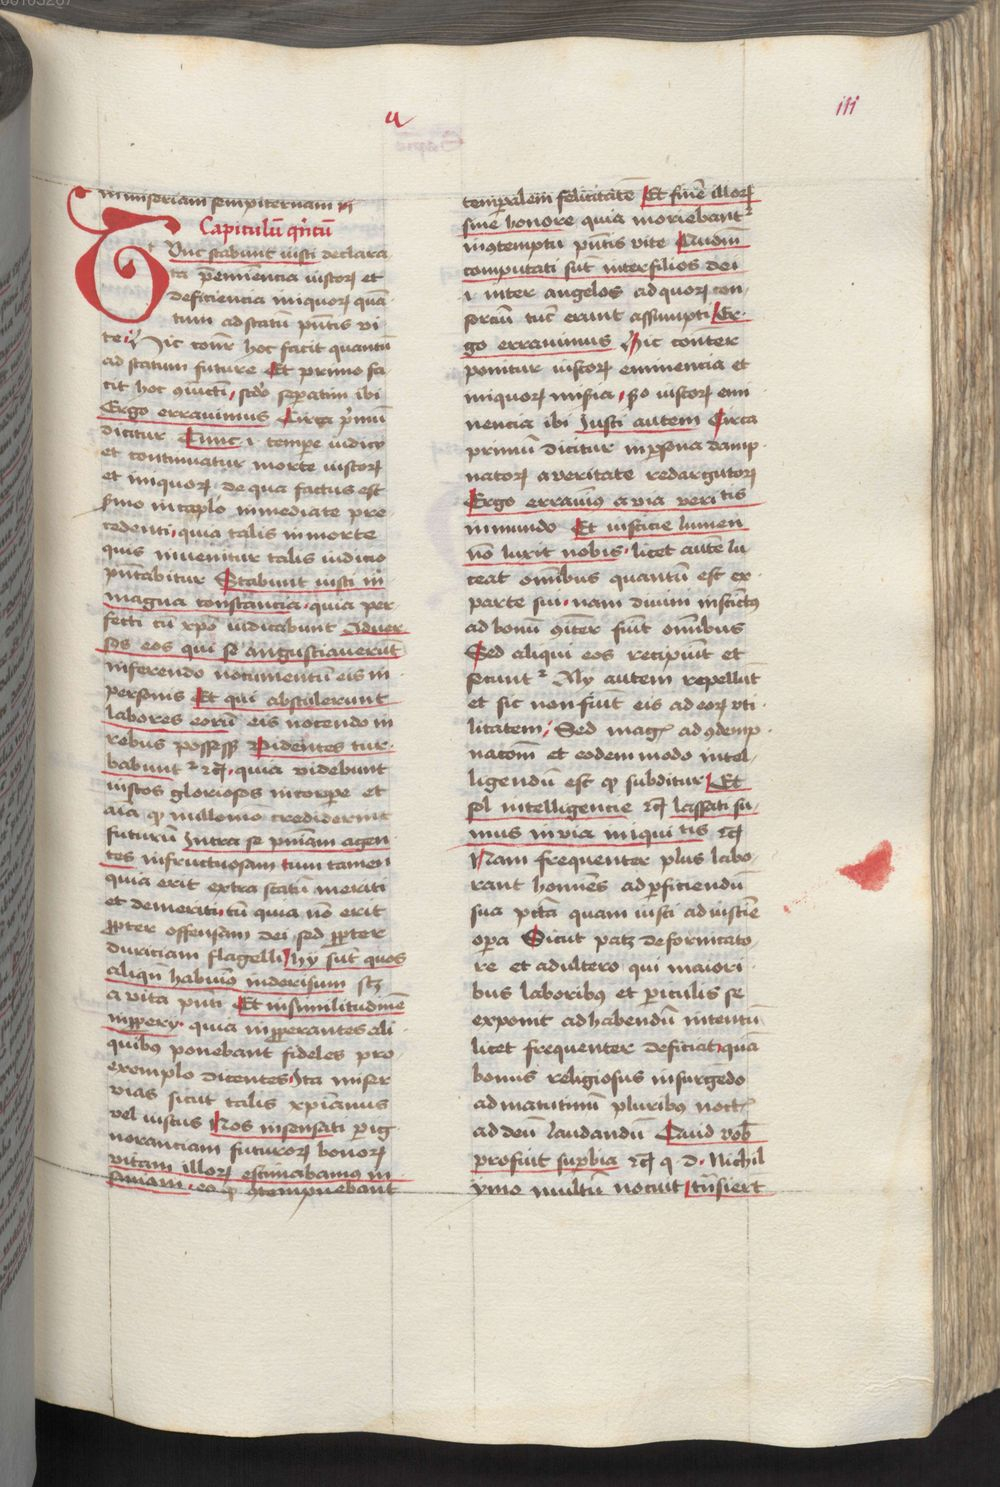 iii
in miseriam sempiternam
Capitulū qn̄tū
Tunc stabunt iusti declara
ta p̄eminencia iustoꝝ et
deficiencia iniquoꝝ quā
tum ad statū pn̄tis vi
te hic hoc facit quantū
ad statum future Et primo fa
cit hoc sepatim ibi
Ergo erravimus Circa p̄mū
dicitur Tunc i tempe iudicij
et continuatur morte iustoꝝ
et iniquoꝝ de qua factus est
sermo in caplo inmediate pre
cedenti quia talis in morte
quis invenitur talis iudicio
pn̄tabitur Stabunt iusti in
magna constancia quia per
fecti cū xp̄o iudicabunt Adver
sos eos qui se angustiaverūt
inferendo nocumentū eis in
personis Et qui abstulerunt
labores eorū eis nocendo in
rebus possess Videntes tur
babunt quia videbunt
iustos gloriosos in corpe et
aīa nullomō crediderunt
futurū Intra se pn̄iam agen
tes infructuosam tum tamen
quia erit extra statū meriti
et demeriti tū quia nō erit
ꝓpter offensam dei sed ꝓpter
duriciam flagelli hy sūt quos
aliqn̄ habuimꝰ in derisum scꝫ
a vita pn̄ti Et in similitudinē
inꝓpery quia inꝓperantes ali
quibus ponebant fideles pro
exemplo dicentes Ita miser
vias sicut talis xp̄ianus
vel iustus Nos insensati p ig
noranciam futuroꝝ bonoꝝ
vitam illoꝝ estimabamus in
saniam eo contempnebant
tempalem felicitatē Et finē illoꝝ
sine honore quia moriebant
in contemptu pn̄tis vite Quōm
computati sūt inter filios dei
i inter angelos ad quoꝝ con
sorciū tūc erunt assumpti Er
go erravimus Hic conter
ponitur iustoꝝ eminencia et
iniquoꝝ miseria 2o iustoꝝ emi
nencia ibi Iusti autem Circa
primū dicitur in psona damp
natoꝝ a veritate redargutoꝝ
Ergo erravimꝰ a via veritatis
in mundo Et iusticie lumen
nō luxit nobis licet autē lu
ceat omībus quantū est ex
parte sui nam divini instinctꝰ
ad bonū fiūt omībus
Sed aliqui eos recipiūt et
secunt Aly autem repellūt
et sic non fiūt eis ad eoꝝ uti
litatem Sed magꝭ ad condemp
nacōm et eodem modo intel
ligendū est subditur Et
sol intelligencie lassati su
mus in via iniquitatis
Nam frequenter plus labo
rant homines ad pficiendū
sua pctā quam iusti ad iusticie
opa Sicut patꝫ de fornicato
re et adultero qui maiori
bus laboribꝰ et piculis se
exponit ad habendū intentū
licet frequenter deficiat quā
bonus religiosus insurgēdo
ad matutinū pluribꝰ noctꝭ
ad deū laudandū Quid vob
profuit supbia q d Nichil
ymo multū nocuit